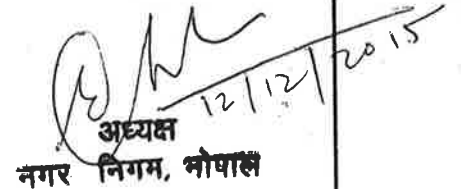 12/12/2015
अध्यक्ष
नगर निगम, भोपाल